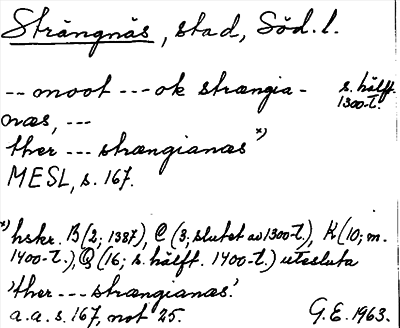 Strängnäs, stad, Söd. l.
-- moot --- ok strængia- s. hälft.
næs, --- 1300-t.
ther --- strængianæs x)
MESL, s. 167.
x) hskr. B (2; 1387), C (3; slutet av 1300-t.), K (10; m.
1400-t.), Q (16; s. hälft. 1400-t.) utesluta
'ther --- strængianæs'.
a.a. s. 167, not 25. G.E. 1963.